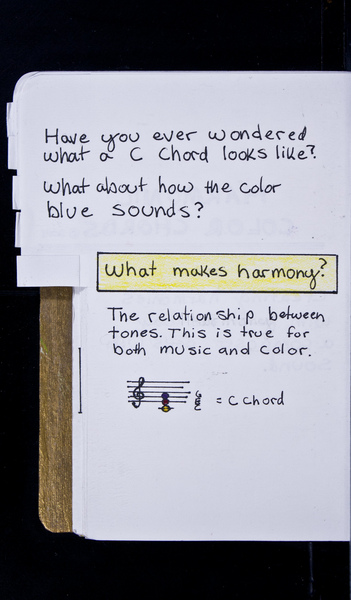 Have you ever wondered
what a C chord looks like?
what about how the color
blue sounds?
What makes harmony?
The relationship between
tones. This is true for
both music and color.
G
E
C
= C chord